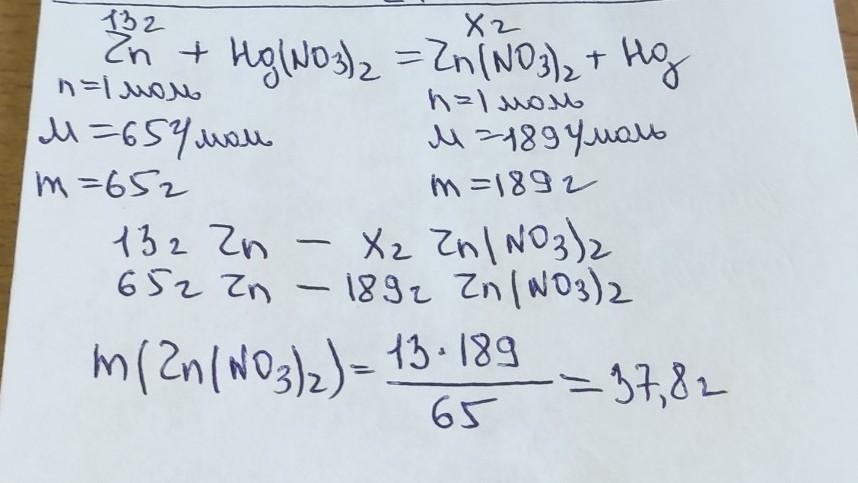 13г X г
Zn + Hg(NO3)2 = Zn(NO3)2 + Hg
n=1моль n=1моль
M=65г/моль M=189г/моль
m=65г m=189г
13г Zn — Xг Zn(NO3)2
65г Zn — 189г Zn(NO3)2
m(Zn(NO3)2)= 13·189 / 65 = 37,8г